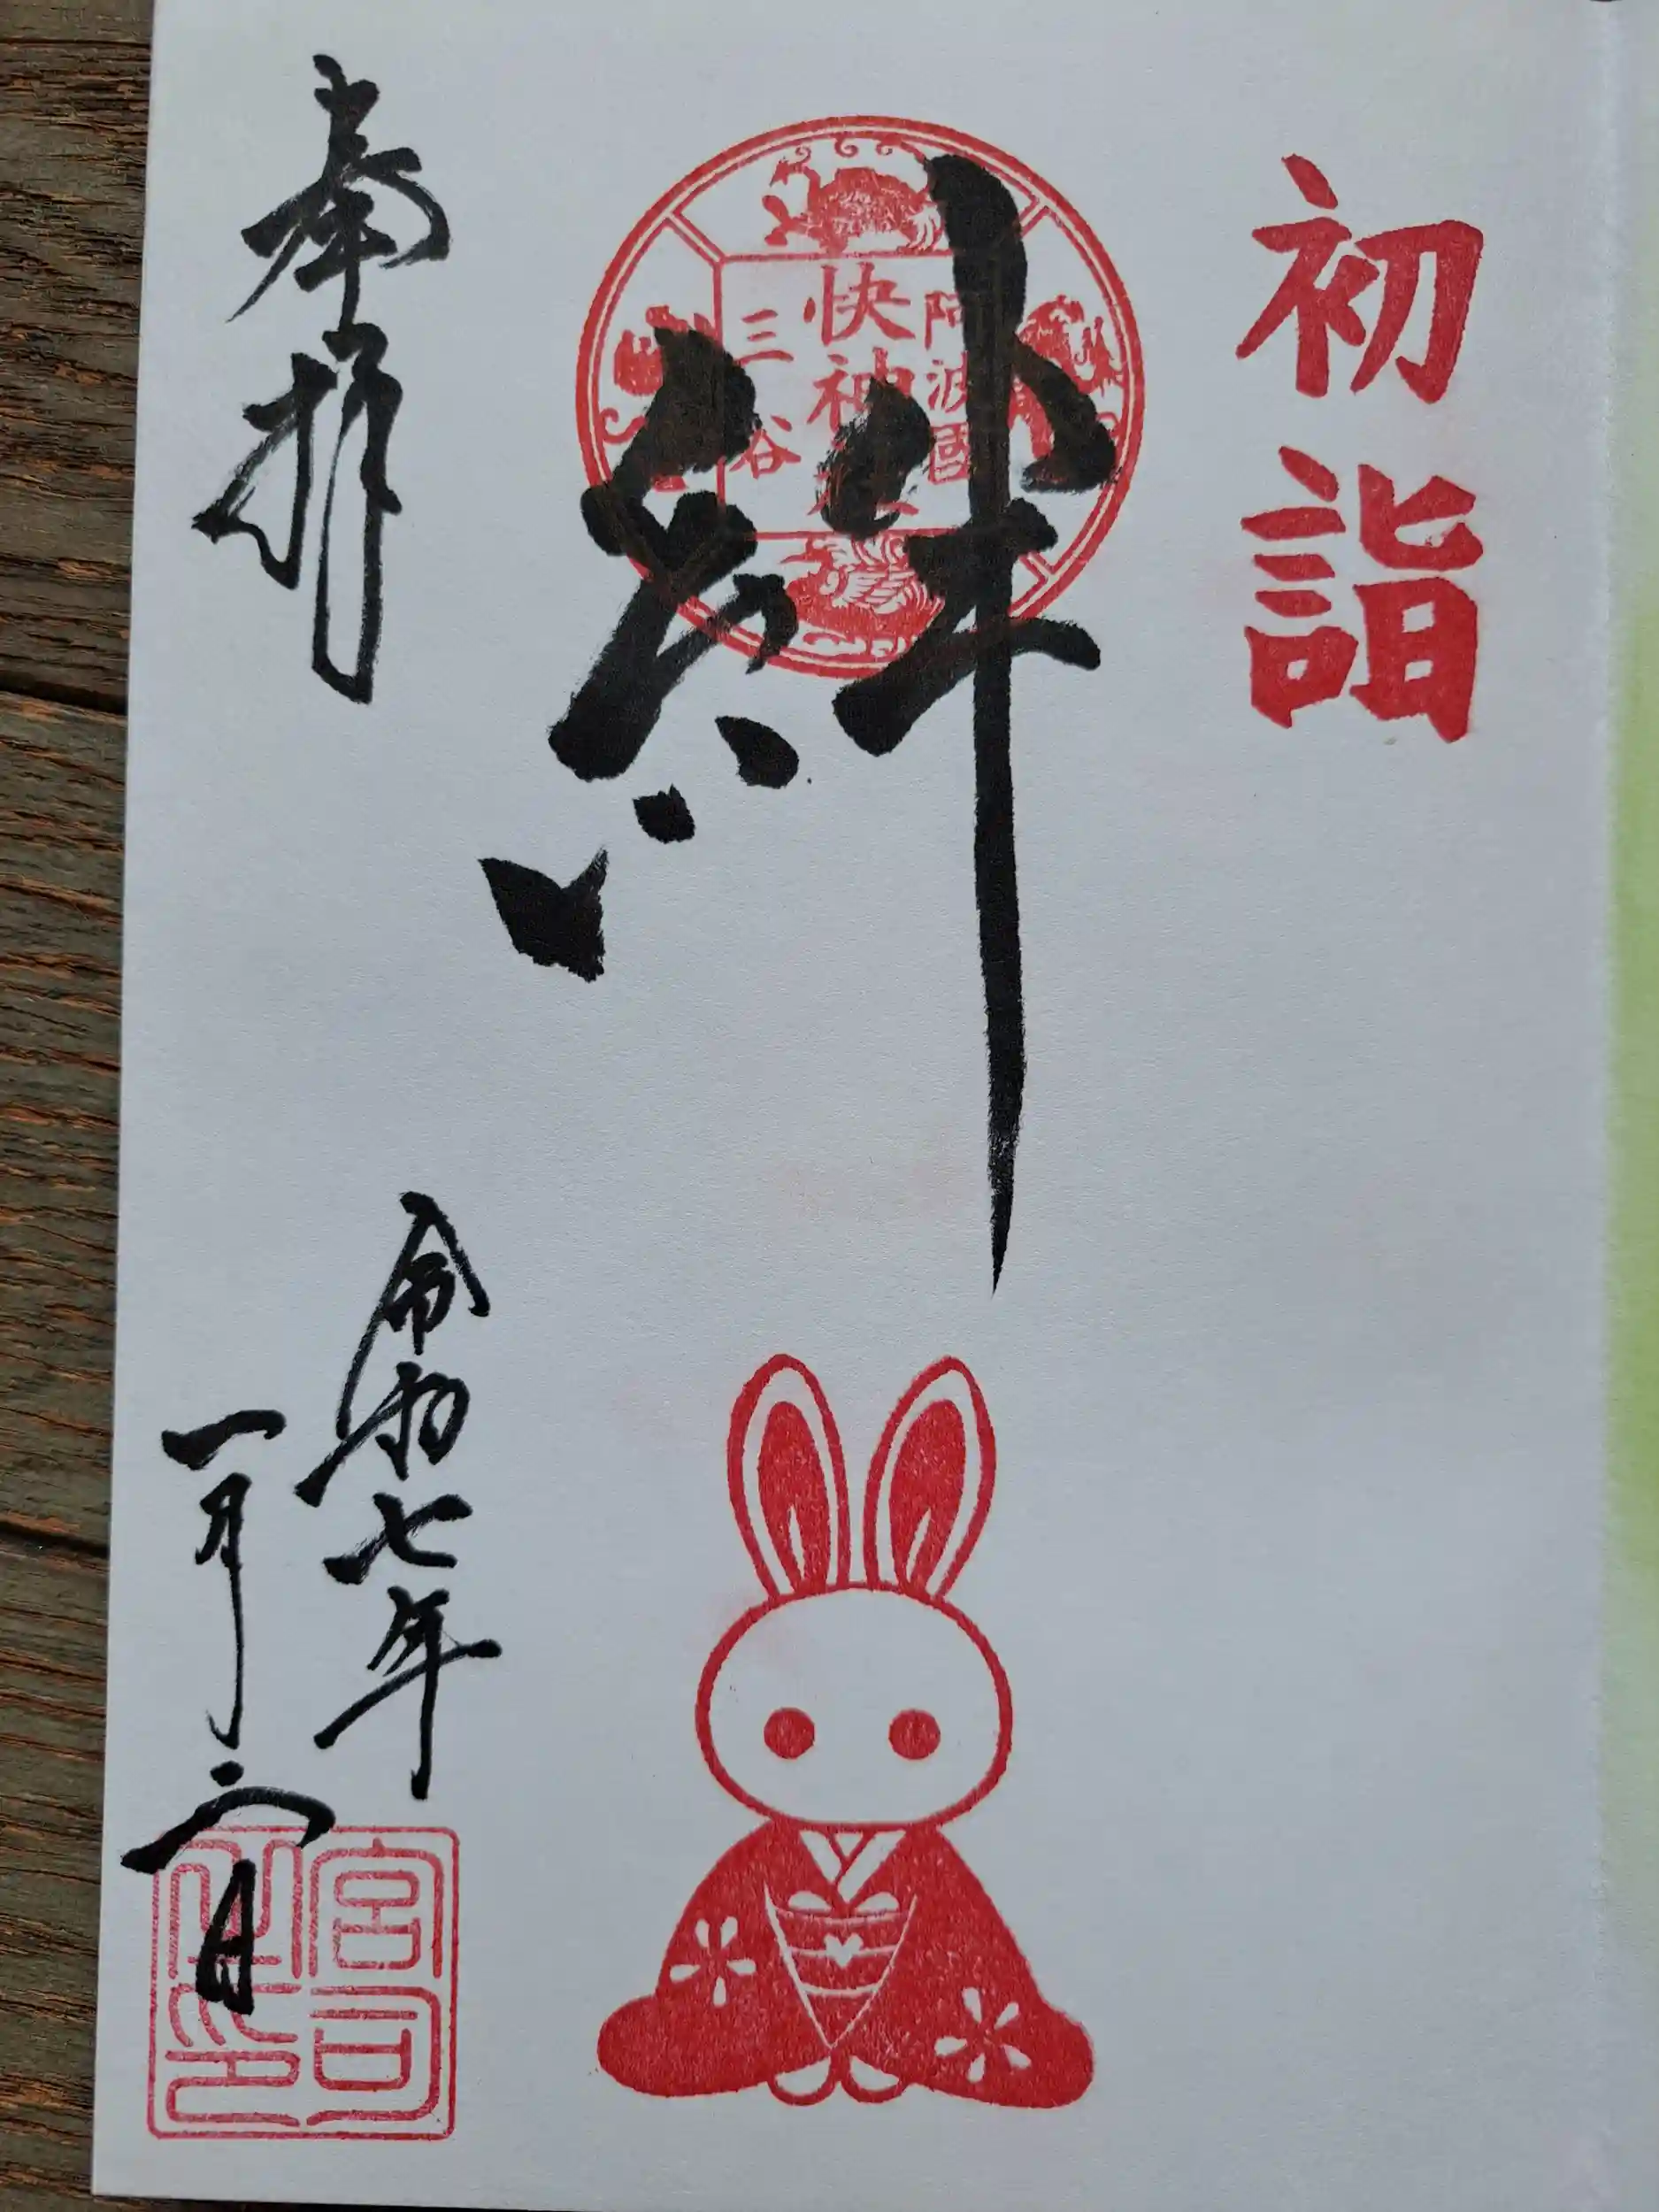 初詣
阿波國
快神社
三谷
絆
奉拝
令和七年
一月六日
宮司之印